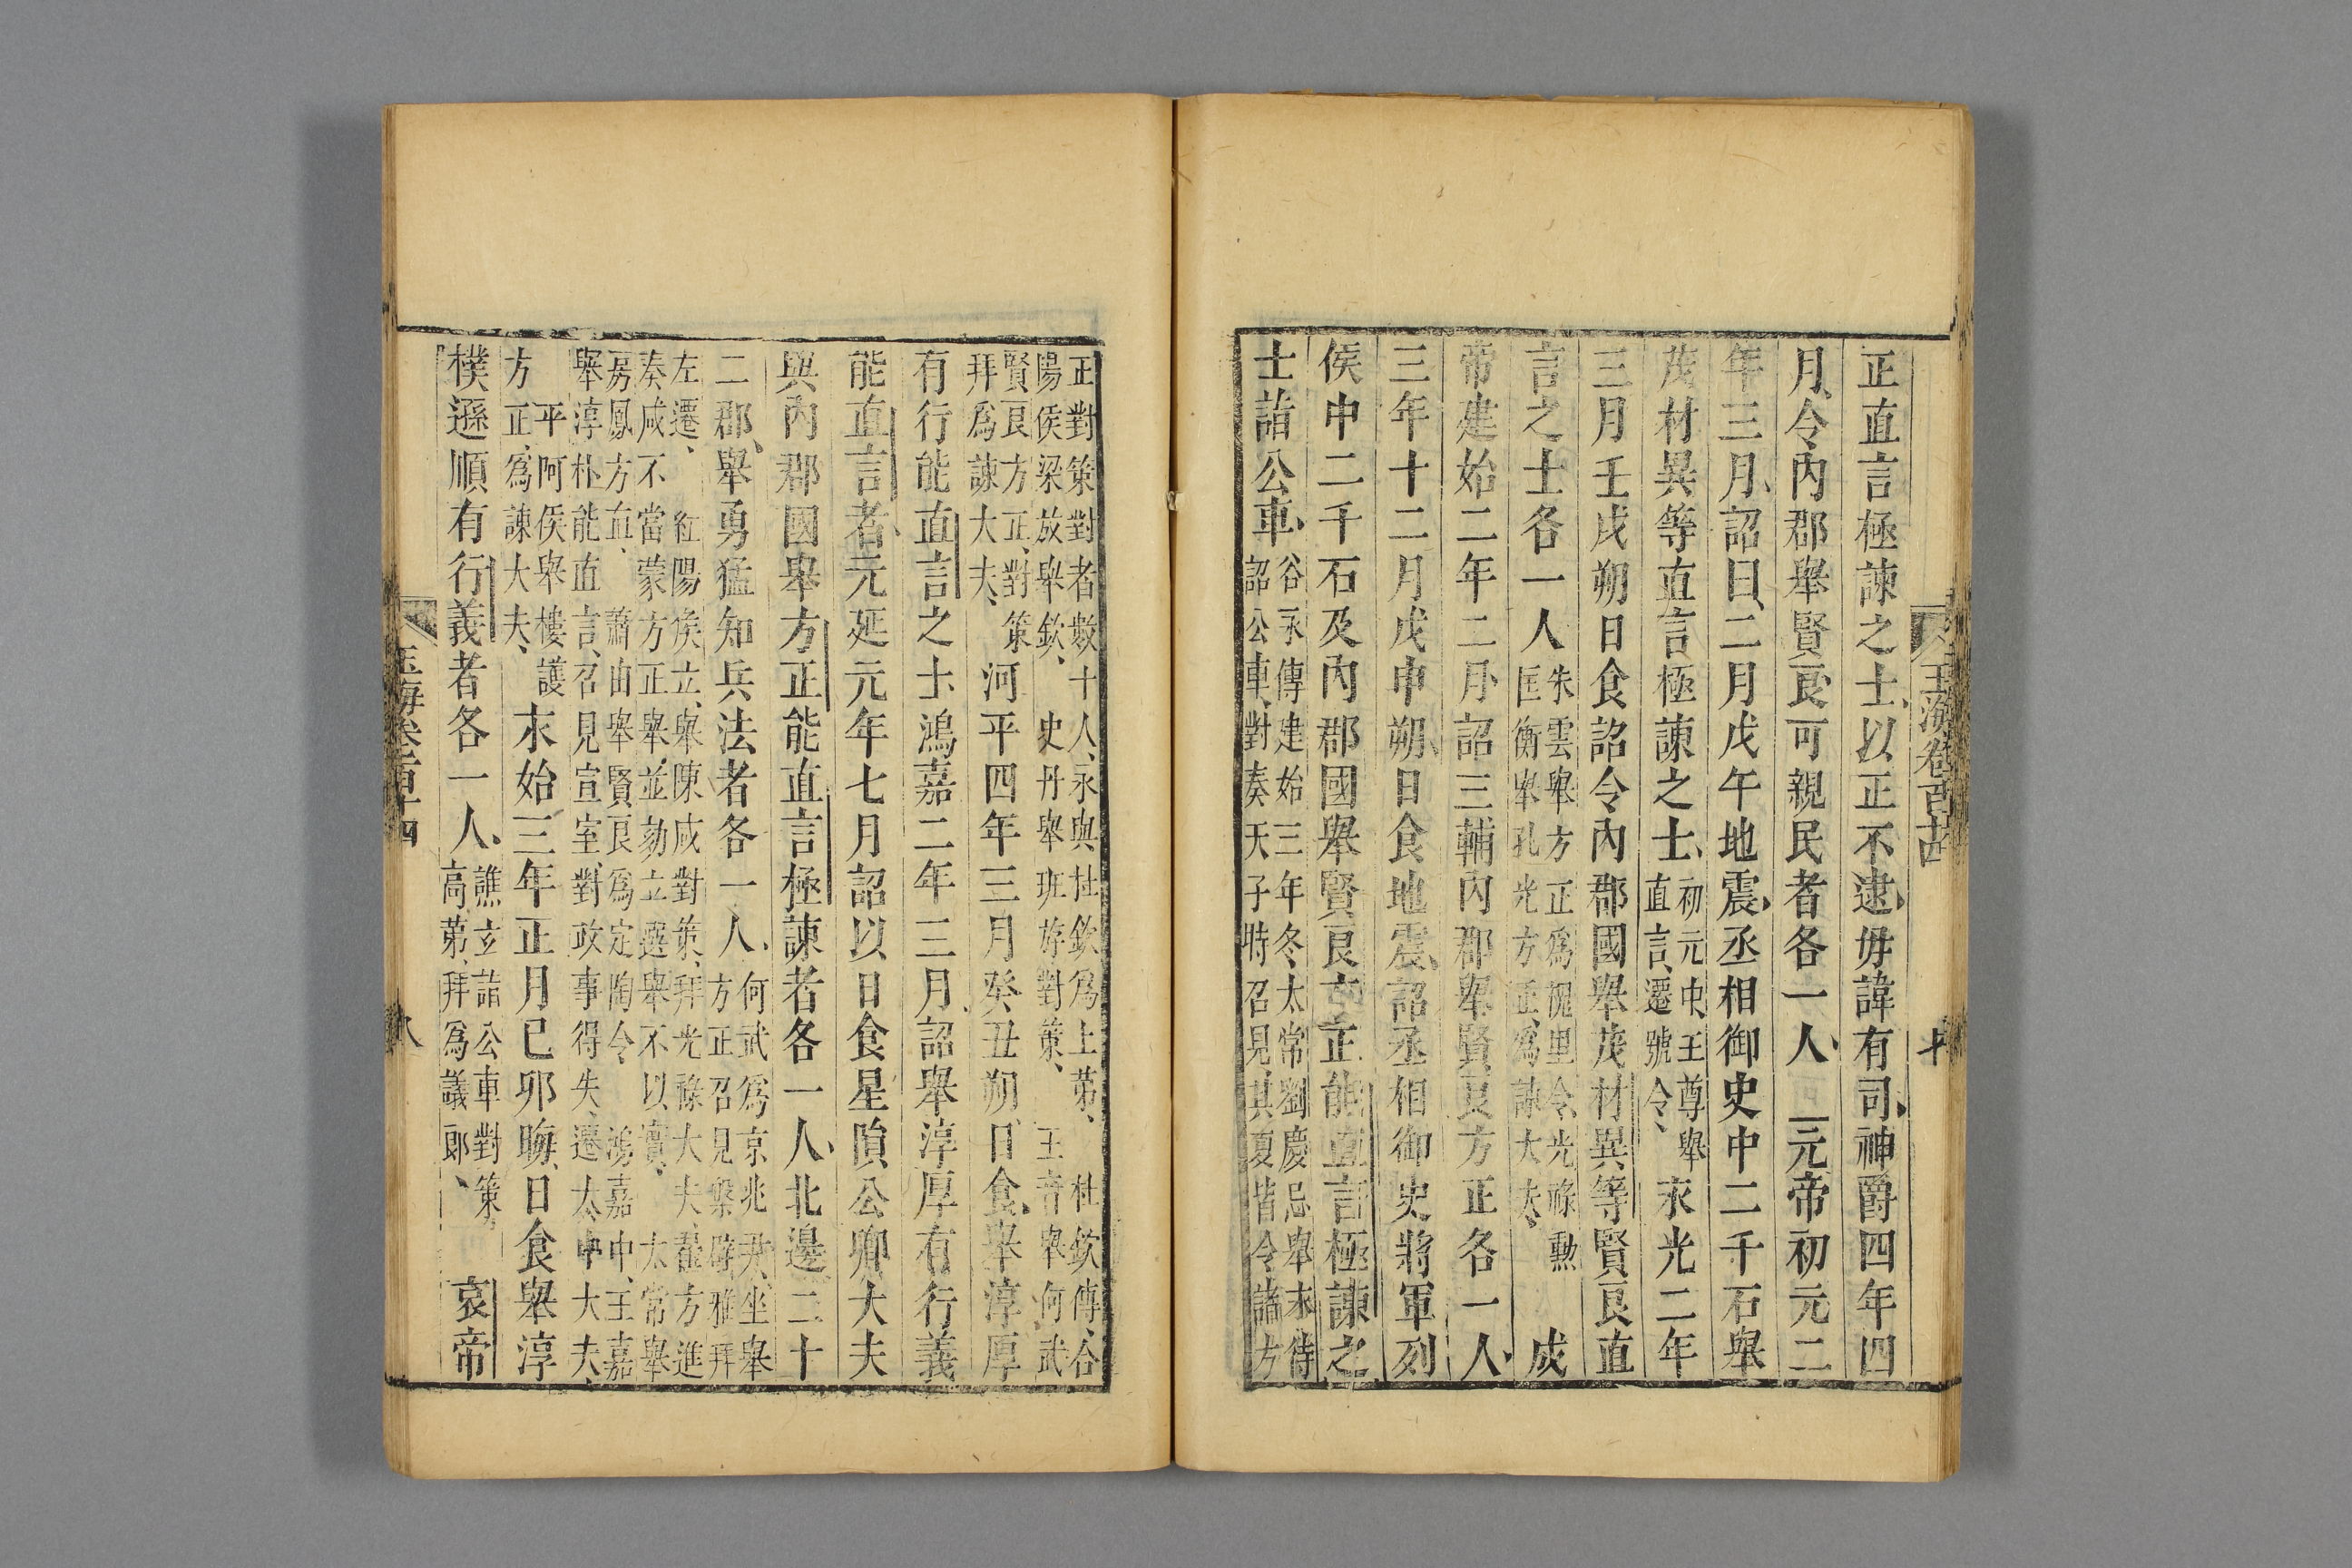 玉海卷百十四
七
正直言極諫之士以正不逮毋諱有司神爵四年四
月令內郡舉賢良可親民者各一人 元帝初元二
年三月詔曰二月戊午地震丞相御史中二千石舉
茂材異等直言極諫之士初元中王尊舉直言遷號令永光二年
三月壬戌朔日食詔令內郡國舉茂材異等賢良直
言之士各一人朱雲舉方正爲槐里令光祿勳匡衡舉孔光方正爲諫大夫 成
帝建始二年二月詔三輔內郡舉賢良方正各一人
三年十二月戊申朔日食地震詔丞相御史將軍列
侯中二千石及內郡國舉賢良方正能直言極諫之
士詣公車谷永傳建始三年冬太常劉慶忌舉永待詔公車對奏天子時召見其夏皆令諸方
正對策對者數十人永與杜欽爲上第 杜欽傳合陽侯梁放舉欽 史丹舉班斿對策 王音舉何武
賢良方正對策拜爲諫大夫河平四年三月癸丑朔日食舉淳厚
有行能直言之士鴻嘉二年三月詔舉淳厚有行義
能直言者元延元年七月詔以日食星隕公卿大夫
與內郡國舉方正能直言極諫者各一人北邊二十
二郡舉勇猛知兵法者各一人何武爲京兆尹坐舉方正召見槃辟雅拜
左遷 紅陽侯立舉陳咸對策拜光祿大夫翟方進奏咸不當蒙方正舉並劾立選舉不以實 太常舉
房鳳方直 蕭由舉賢良爲定陶令 鴻嘉中王嘉舉淳朴能直言召見宣室對政事得失遷太中大夫
平阿侯舉樓護方正爲諫大夫永始三年正月已卯晦日食舉淳
樸遜順有行義者各一人譙玄詣公車對策高第拜爲議郎 哀帝
玉海卷百十四
八